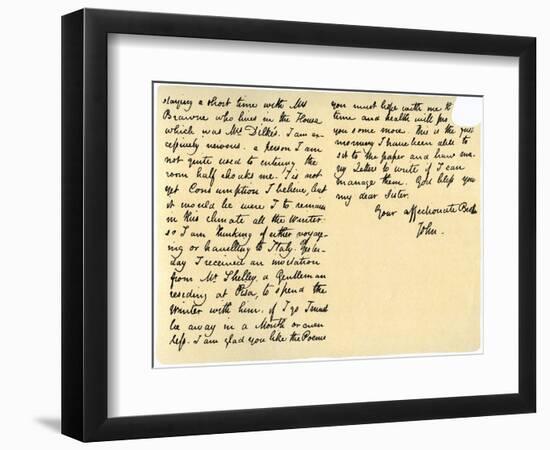 staying a short time with Mrs
Brawne who lives in the House
which was Mrs Dilke's. I am ex
cessively nervous. a person I am
not quite used to entering the
room half choaks me. T'is not
yet Consumption I believe, but
it would be were I to remain
in this climate all the Winter:
so I am thinking of either voyag-
ing or travelling to Italy. Yester-
day I received an invitation
from Mr Shelley, a Gentleman
residing at Pisa, to spend the
Winter with him. if I go I must
be away in a Month or even
less. I am glad you like the Poems
you must hope with me
time and health will
you some more. This is the
morning I have been able to
sit to the paper and have ma-
ny Letters to write if I can
manage them. God bless you
my dear Sister.
Your affectionate
John.